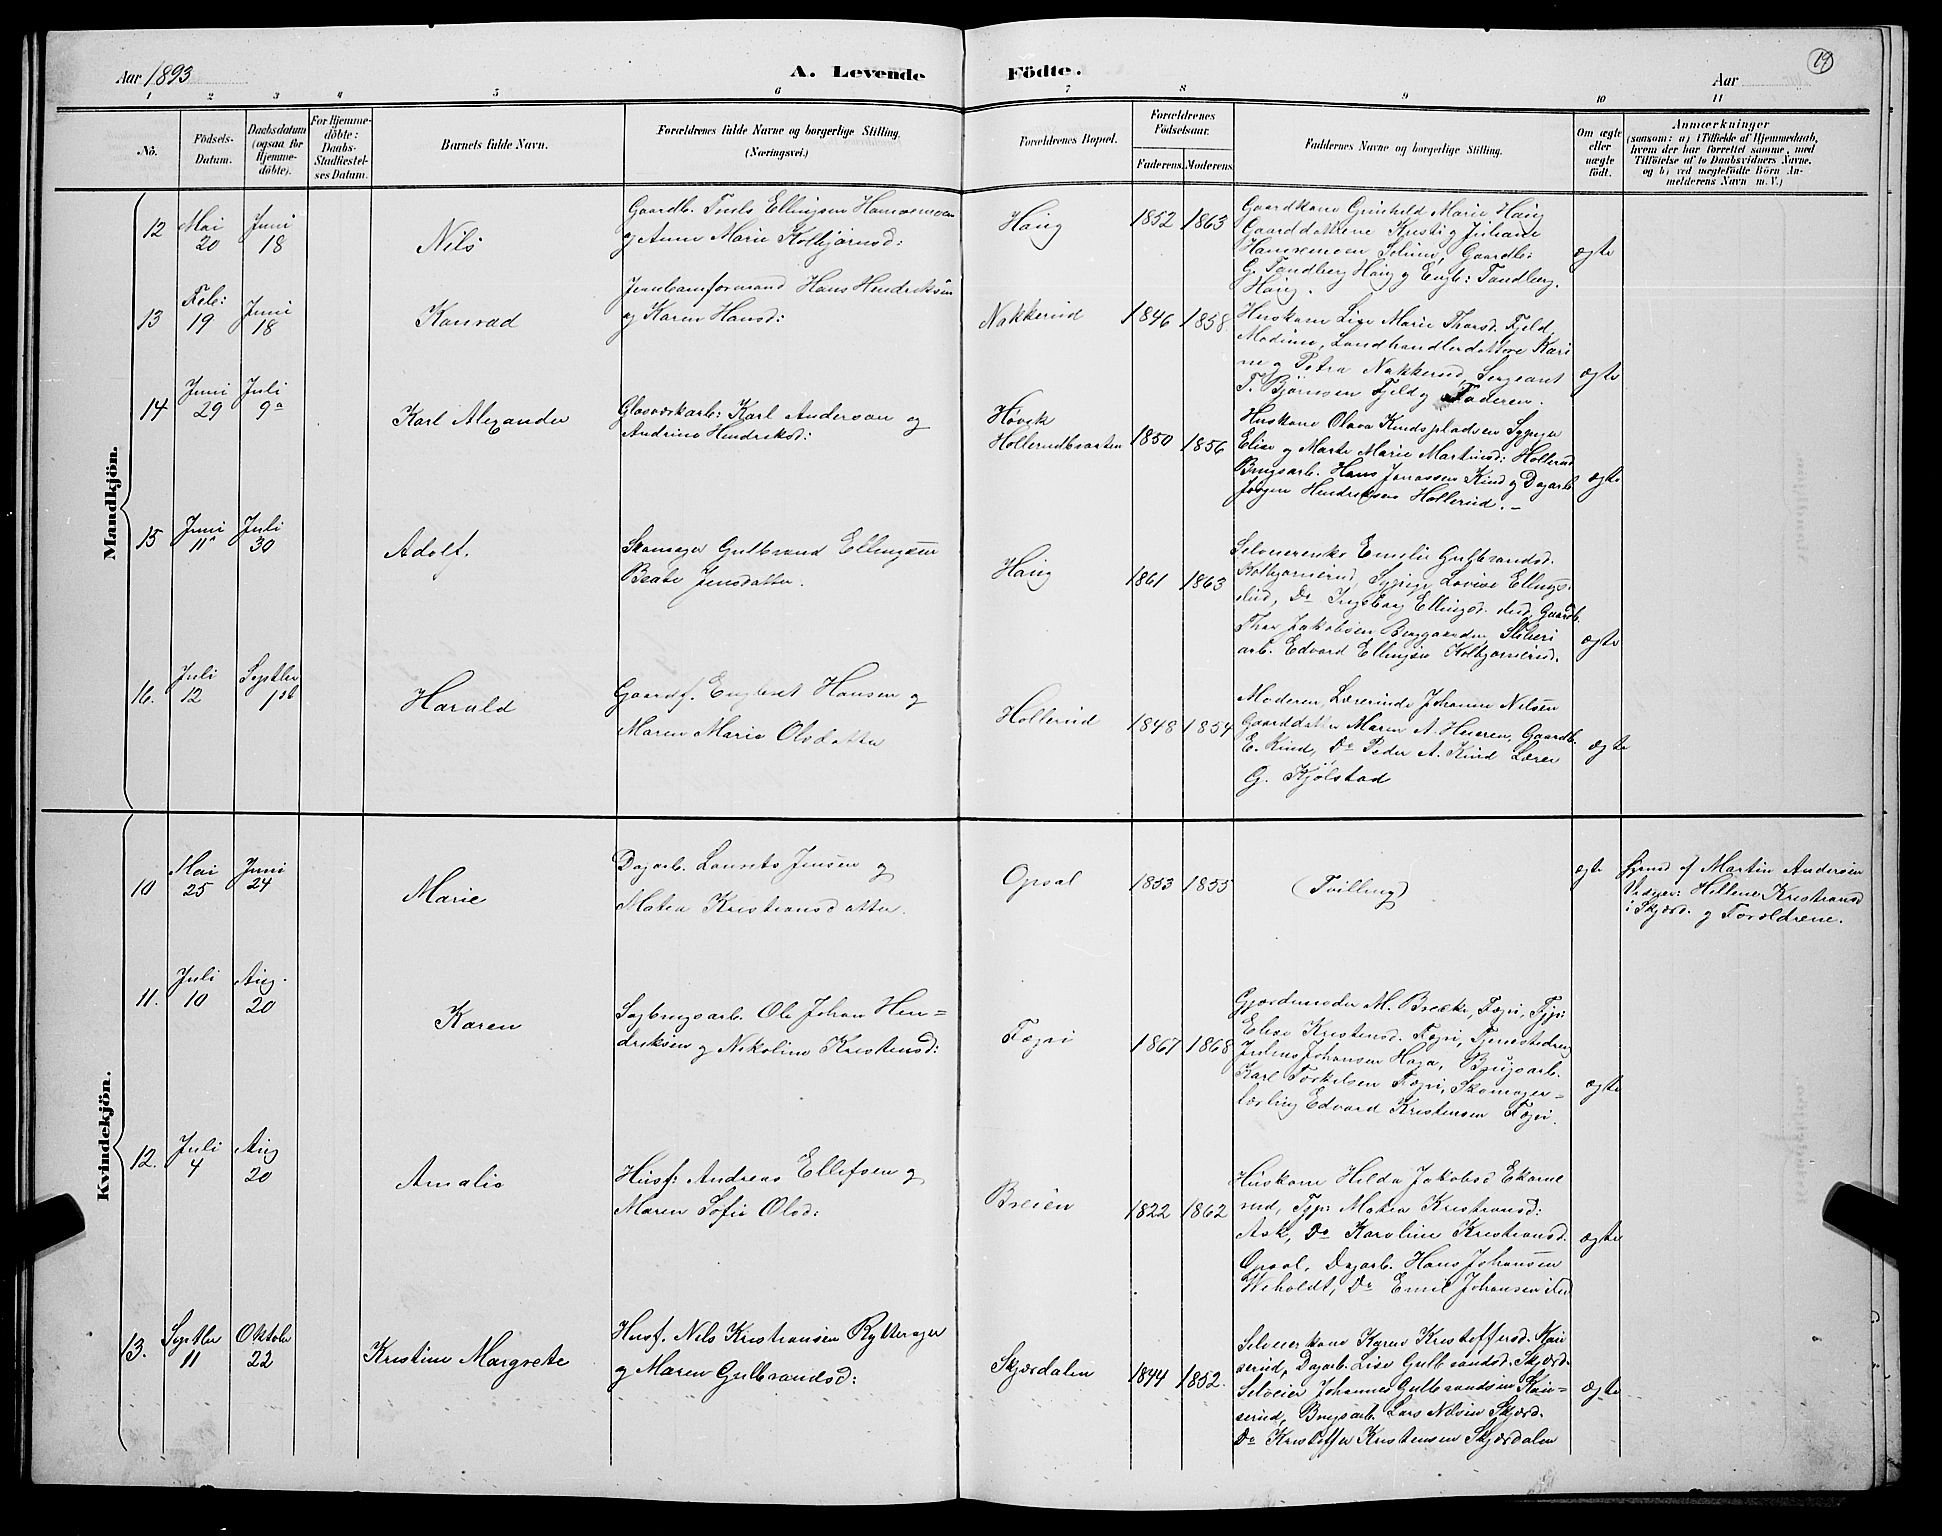 Aar 1893
A. Levende Födte.
Aar
19
1 2 3 4 5 6 7 8 9 10 11
No.
Födsels-
Datum.
Daabsdatum
(ogsaa for
Hjemme-
döbte).
For Hjemme-
döbte:
Daabs-
Stadfæstel-
ses Datum.
Barnets fulde Navn.
Forældrenes fulde Navne og borgerlige Stilling.
(Næringsvei.)
Forældrenes Bopæl.
Forældrenes
Födselsaar.
Faderens. Moderens.
Faddernes Navne og borgerlige Stilling.
Om ægte
eller
uægte
födt.
Anmærkninger
(saasom: a) i Tilfælde af Hjemmedaab,
hvem der har forrettet samme, med
Tilföielse af to Daabsvidners Navne,
og b) ved uægtefödte Börn An-
melderens Navn m. V.)
Mandkjön.
12
Mai
20
Juni
18
Nils
Gaardb. Truls Ellingsen
og Anne Marie Kolbjørnsd:
Haug
1852 1863
Gaardkone Gunhild Marie Haug
Gaarddøttrene Kristi og Juliane
Gaardbr:
G. Tandberg Haug og Engb: Tandberg
Haug.
ægte
13
Feb:
19
Juni
18
Konrad
Jernbaneformand Hans Hendriksen
og Karen Hansd:
Nakkerud
1846 1858
Huskone Lise Marie Thorsd. Fjeld,
Modum, Landhandlerdøttre Kari
ne og Petra Nakkerud, Sergeant
T. Bjørnsen Fjeld og Faderen.
ægte
14
Juni
29
Juli
9
Karl Alexander
Glasværkarb: Karl Anderson og
Andrine Hendriksd:
Høvik
Hollerudbraaten
1850 1856
Huskone Olava Kindspladsen Sypige
Elise og Marte Marie Martinsd: Hollerud
Brugsarb. Hans Jonassen Kind og Dagarb.
Jørgen Hendriksen Hollerud. –
ægte
15
Juni
11
Juli
30
Adolf.
Skomager Gulbrand Ellingsen
Beate Jensdatter.
Haug
1861 1863
Selveierenke Emilie Gulbrandsd.
Kolbjørnsrud, Sypige Lovise Ellings-
Do Ingeborg Ellingsd. Gaardb.
Thor Jakobsen Sliberi
arb. Edvard Ellingsen Kolbjørnsrud.
ægte
16.
Juli
12
Septbr
Harald
Gaardf. Engbret Hansen og
Maren Marie Olsdatter
Hollerud
1848 1854
Moderen, Lærerinde Johanne Nilsen
Gaarddatter Maren A. Gaardb.
E. Kind, Do Peder A. Kind Lærer
G. Kjølstad
ægte
Kvindekjön.
10
Mai
25
Juni
24
Marie
Dagarb. Laurits Jensen og
Matea Kristiansdatter.
Opsal
1853 1855
(Tvilling)
ægte
af Martin Andersen
Hellene Kristiansd
i Skjærd. og Forældrene.
11.
Juli
10
Aug.
20
Karen
Sagbrugsarb. Ole Johan Hen=
driksen og Nikoline Kristensd:
Fægri
1867 1868
Gjordemoder M. Brække, Fægri, Typ:
Elise Kristensd. Fægri, Tjenestedreng
Julius Johansen Haga, Brugsarb.
Karl Torkelsen Fægri, Skomager=
lærling Edvard Kristensen Fægri.
ægte
12.
Juli
4
Aug
20
Amalie
Husf: Andreas Ellefsen og
Maren Sofie Olsd:
Breien
1822 1862
Huskone Hilda Jakobsd Ekorne
rud, Typ: Matea Kristiansd:
Ask, Do Karoline Kristiansd.
Opsal, Dagarb. Hans Johansen
Weholdt, Do Emil Johansen
ægte
13.
Septbr
11
Oktobr
22
Kristine Margrete
Husf. Nils Kristiansen Rytterager
og Maren Gulbrandsd:
Skjærdalen
1844 1852.
Selveierkone Karen Kristoffersd.
serud, Dagarb. Lise Gulbrandsd. Skjærd.
Selveier Johannes Gulbrandsen
serud, Brugsarb. Lars Nilsen Skjærd.
Do Kristoffer Kristensen Skjærdalen
ægte